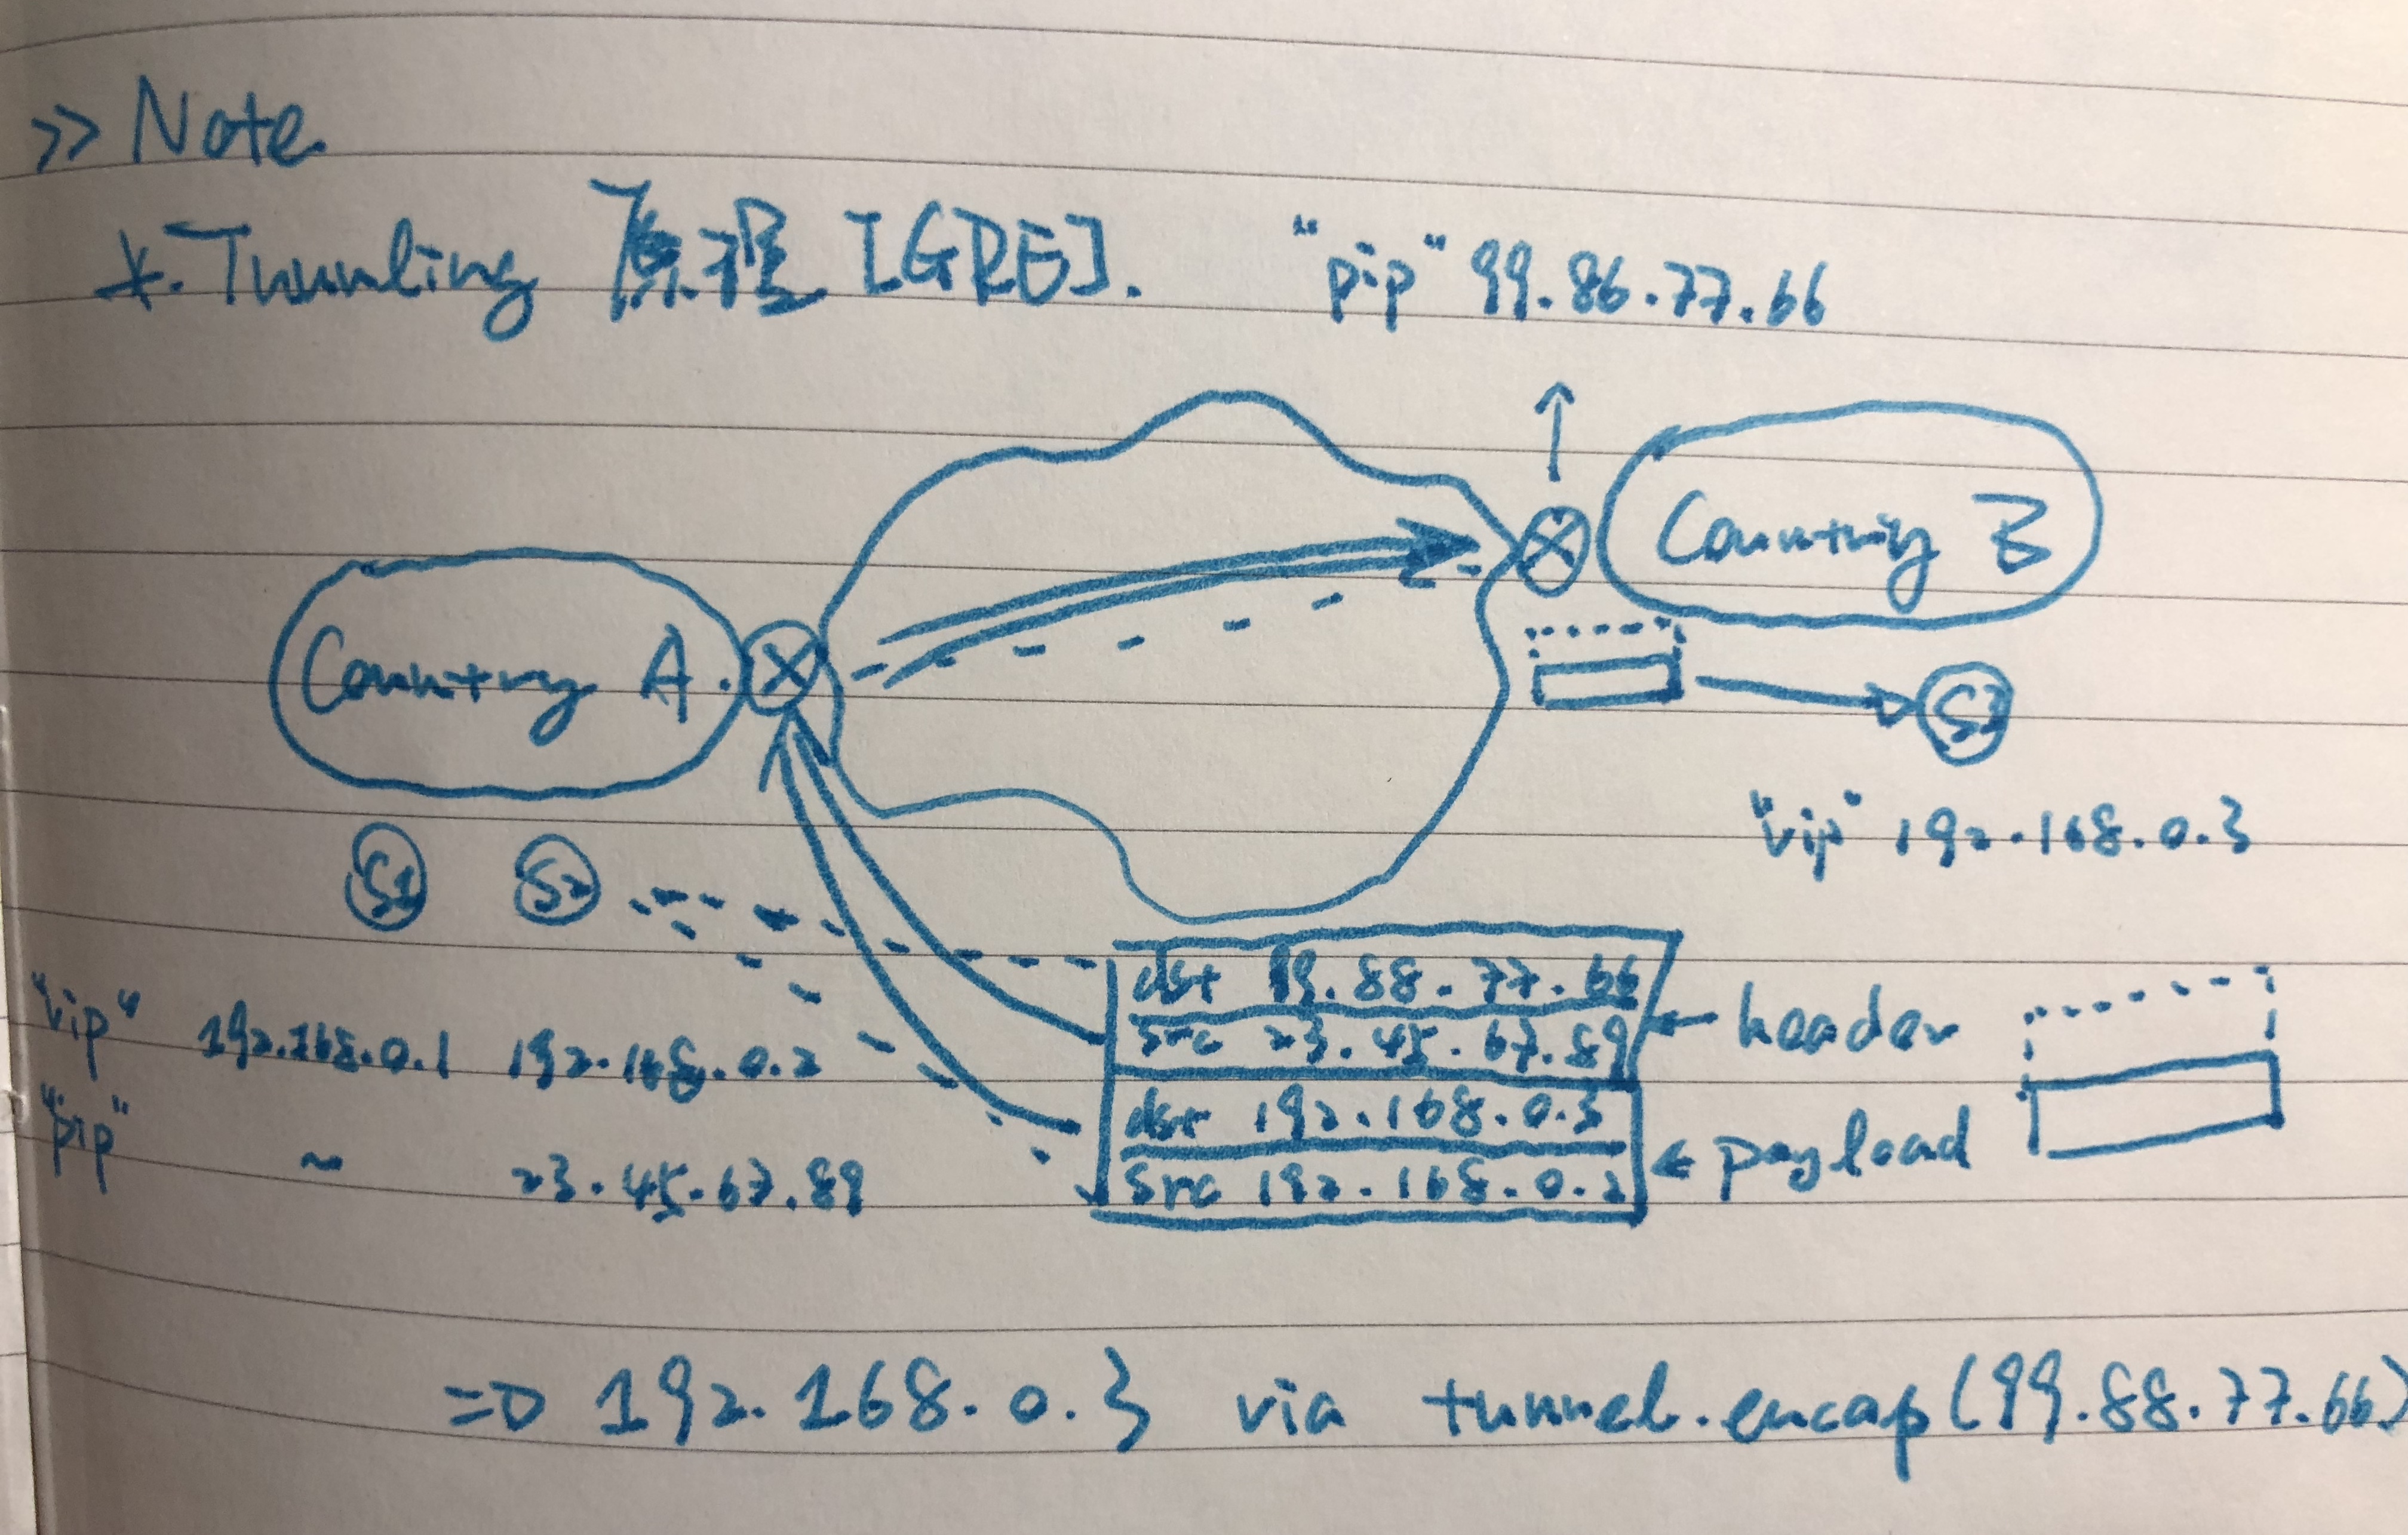 >> Note
*. Tunnling 原理 [GRE].
"pip" 99.86.77.66
Country A.
Country B
S3
"vip" 192.168.0.3
S1 S2
"vip" 192.168.0.1 192.168.0.2
"pip" ~ 23.45.67.89
dst 99.88.77.66
src 23.45.67.89
← header
dst 192.168.0.3
src 192.168.0.2
← payload
=> 192.168.0.3 via tunnel.encap(99.88.77.66)